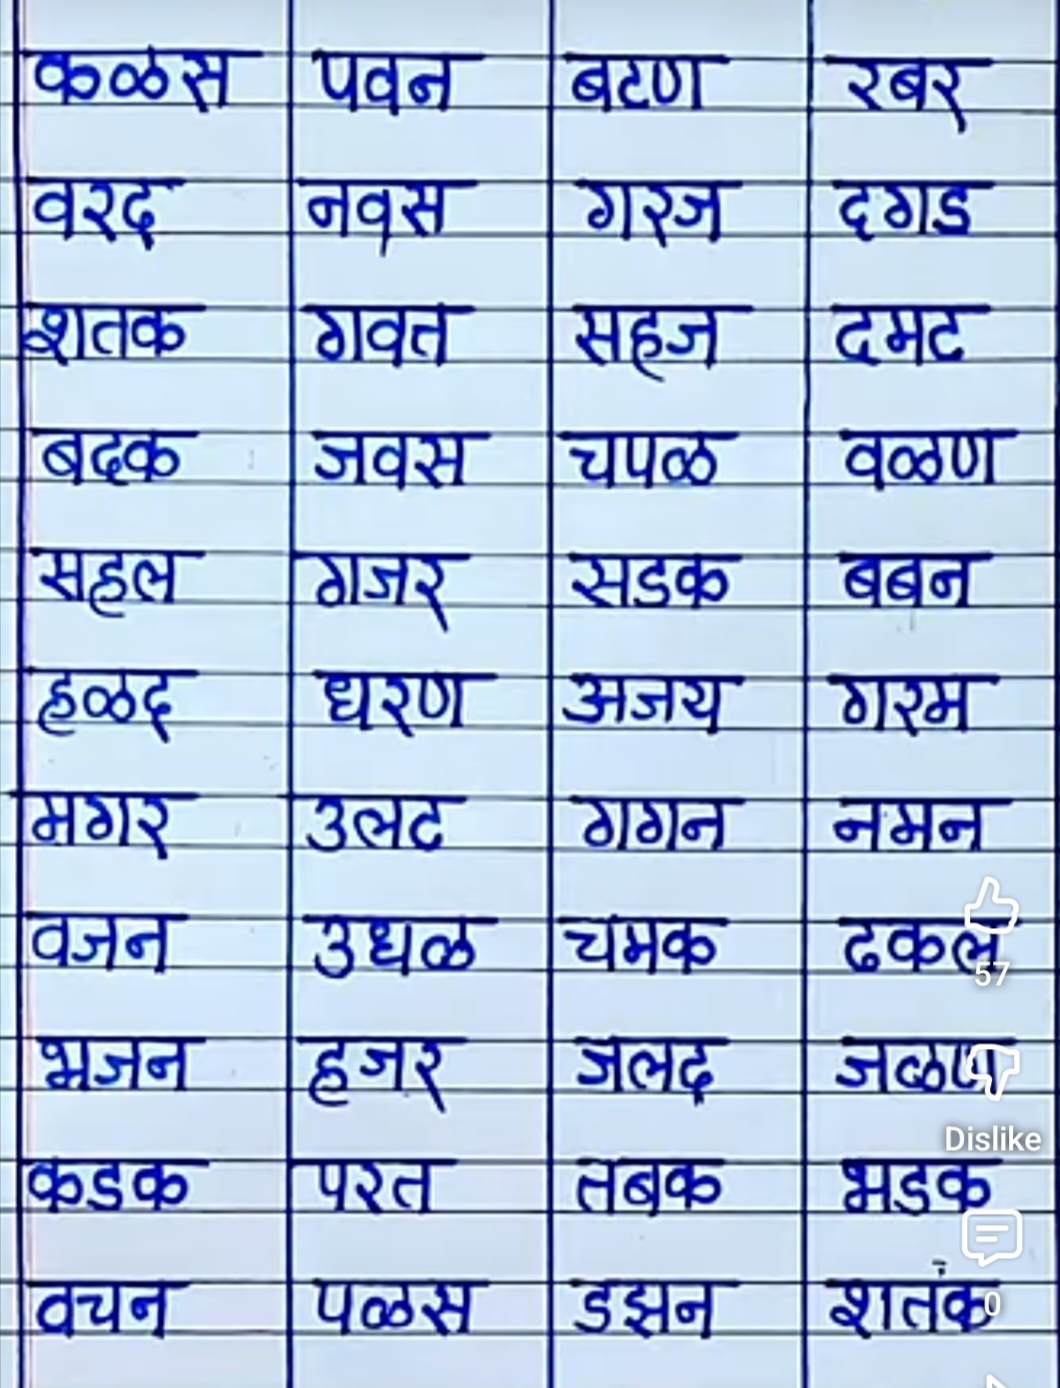 कळस पवन बटण रबर
वरद नवस गरज दगड
शतक गवत सहज दमट
बदक जवस चपळ वळण
सहल गजर सडक बबन
हळद धरण अजय गरम
मगर उलट गगन नमन
वजन उधळ चमक ढकल
57
भजन हजर जलद जळण
Dislike
कडक परत तबक भडक
वचन पळस डझन शतक
0